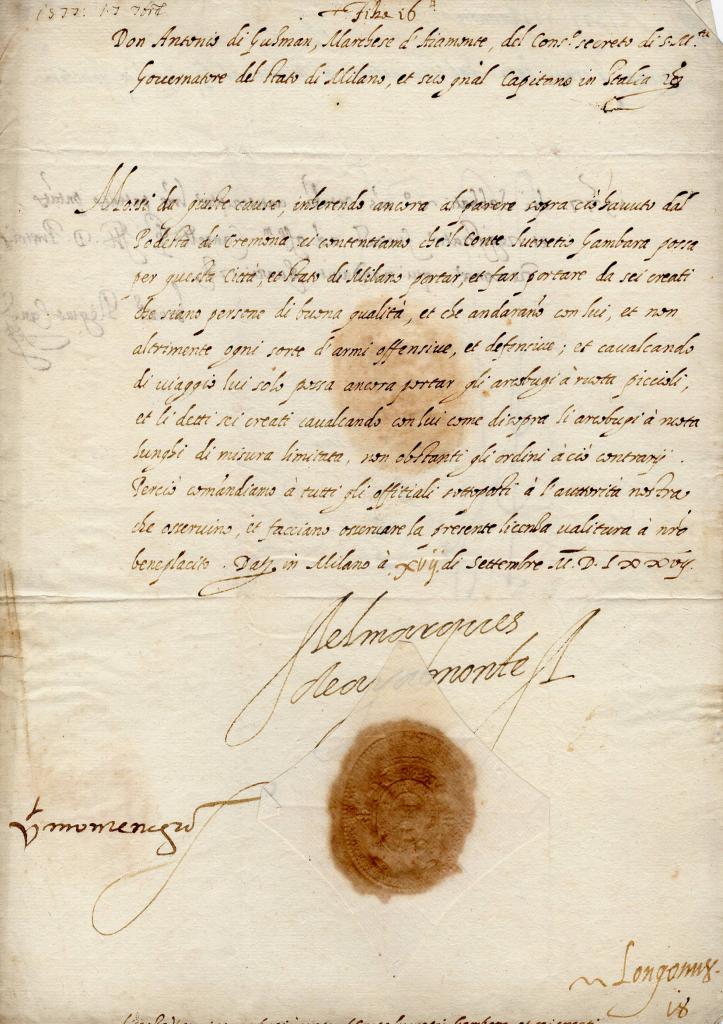 1577: 17 7bre
Filza 16
Don Antonio di Gusman, Marchese d'Aiamonte, del Cons.º secreto di S. M.tà
Governatore del stato di Milano, et suo gnãl Capitano in Italia
Mossi da giuste cause, inherendo ancora al parere sopra ciò havuto dal
Podestà di Cremona, ci contentiamo che'l Conte Lucretio Gambara possa
per questa Città, et stato di Milano portar, et far portare da sei creati
che siano persone di buona qualità, et che andaranno con lui, et non
altrimente ogni sorte d'armi offensive, et defensive; et cavalcando
di viaggio lui solo possa ancora portar gli arcobugi à ruota piccioli,
et li detti sei creati cavalcando con lui come disopra li arcobugi à ruota
lunghi di misura limitata, non obstanti gli ordini à ciò contrarij.
Perciò comandiamo à tutti gli offitiali sottoposti à l'autorità nostra
che osservino, et facciano osservare la presente licenza valitura à nrõ
beneplacito. Dat. in Milano à xvij di Settembre M. D. LXXVIJ.
el marques
de ayamonte
Vt monenegro
Longonus
18